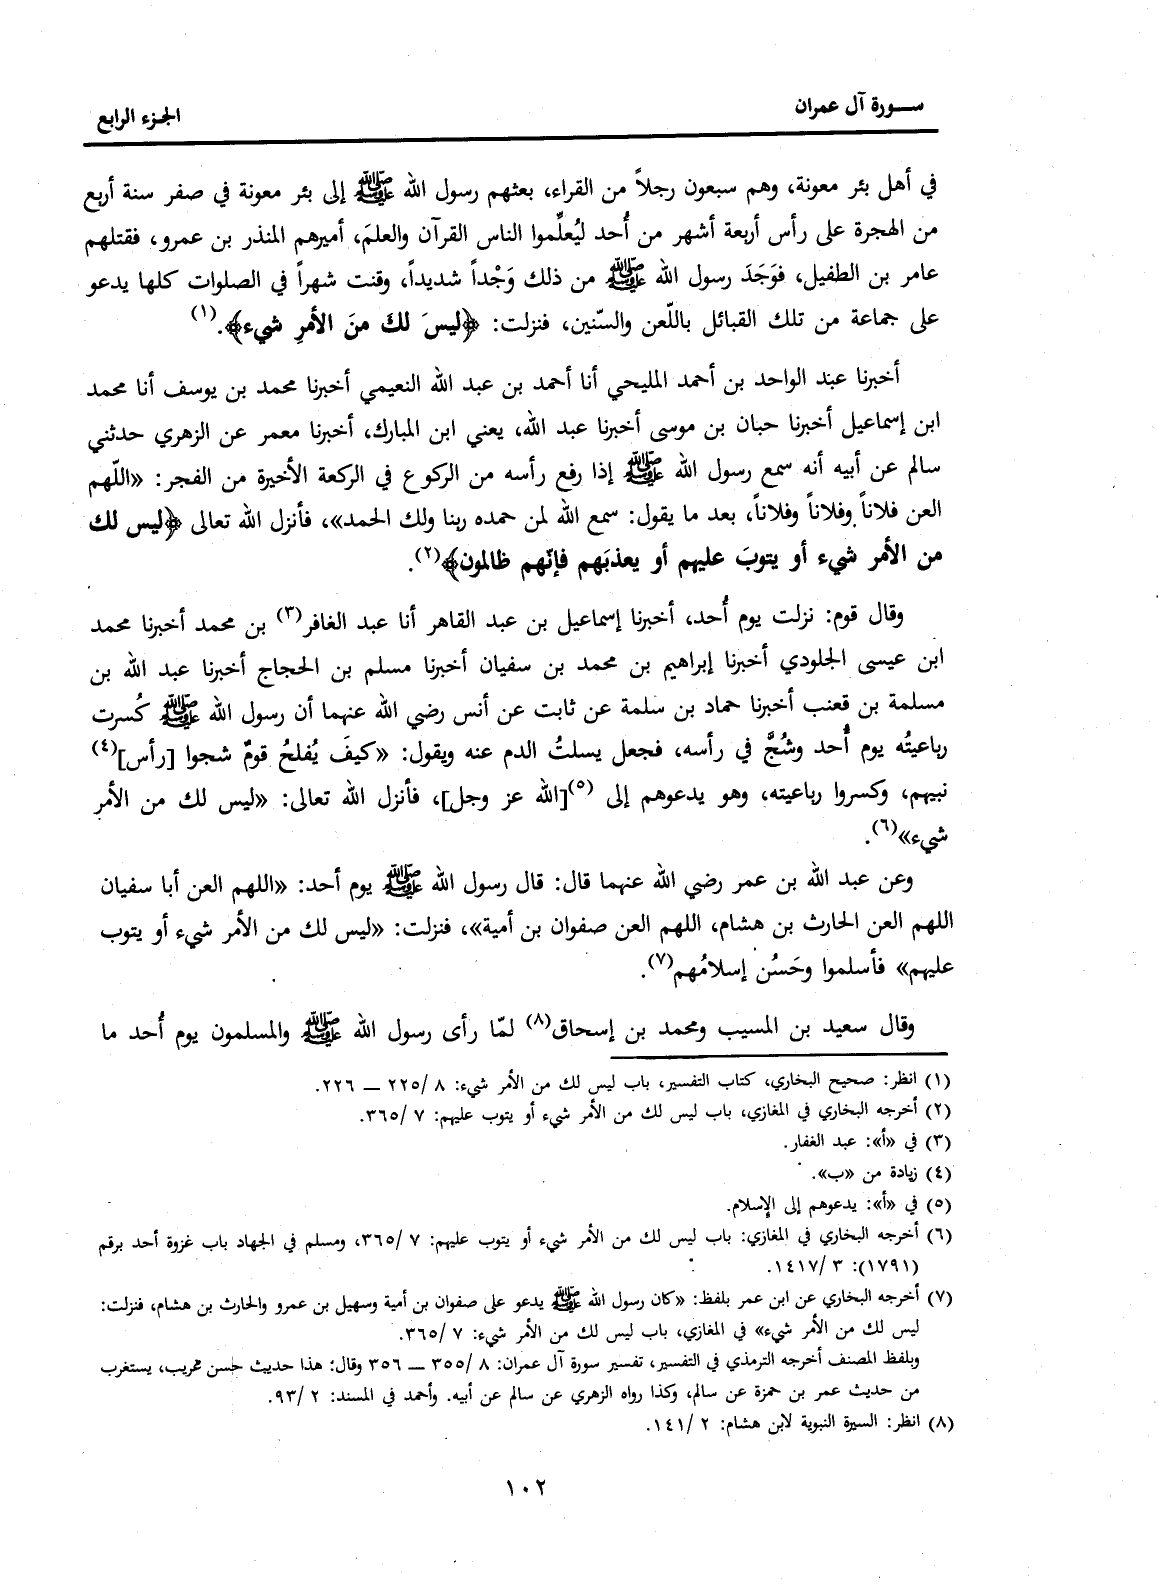 ســورة آل عمران
الجزء الرابع
في أهل بئر معونة، وهم سبعون رجلاً من القراء، بعثهم رسول الله ﷺ إلى بئر معونة في صفر سنة أربع
من الهجرة على رأس أربعة أشهر من أُحد ليُعلِّموا الناس القرآن والعلمَ، أميرهم المنذر بن عمرو، فقتلهم
عامر بن الطفيل، فوَجَدَ رسول الله ﷺ من ذلك وَجْداً شديداً، وقنت شهراً في الصلوات كلها يدعو
على جماعة من تلك القبائل باللّعن والسّنين، فنزلت: ﴿ليسَ لكَ منَ الأمرِ شيء﴾.(١)
أخبرنا عبد الواحد بن أحمد المليحي أنا أحمد بن عبد الله النعيمي أخبرنا محمد بن يوسف أنا محمد
ابن إسماعيل أخبرنا حبان بن موسى أخبرنا عبد الله، يعني ابن المبارك، أخبرنا معمر عن الزهري حدثني
سالم عن أبيه أنه سمع رسول الله ﷺ إذا رفع رأسه من الركوع في الركعة الأخيرة من الفجر: «اللّهم
العن فلاناً وفلاناً وفلاناً، بعد ما يقول: سمع الله لمن حمده ربنا ولك الحمد»، فأنزل الله تعالى ﴿ليس لك
من الأمر شيء أو يتوبَ عليهم أو يعذبَهم فإنّهم ظالمون﴾(٢).
وقال قوم: نزلت يوم أُحد، أخبرنا إسماعيل بن عبد القاهر أنا عبد الغافر(٣) بن محمد أخبرنا محمد
ابن عيسى الجلودي أخبرنا إبراهيم بن محمد بن سفيان أخبرنا مسلم بن الحجاج أخبرنا عبد الله بن
مسلمة بن قعنب أخبرنا حماد بن سلمة عن ثابت عن أنس رضي الله عنهما أن رسول الله ﷺ كُسرت
رباعيتُه يوم أُحد وشُجَّ في رأسه، فجعل يسلتُ الدم عنه ويقول: «كيفَ يُفلحُ قومٌ شجوا [رأس](٤)
نبيهم، وكسروا رباعيته، وهو يدعوهم إلى (٥)[الله عز وجل]، فأنزل الله تعالى: «ليس لك من الأمرِ
شيء»(٦).
وعن عبد الله بن عمر رضي الله عنهما قال: قال رسول الله ﷺ يوم أحد: «اللهم العن أبا سفيان
اللهم العن الحارث بن هشام، اللهم العن صفوان بن أمية»، فنزلت: «ليس لك من الأمر شيء أو يتوب
عليهم» فأسلموا وحَسُن إسلامُهم(٧).
وقال سعيد بن المسيب ومحمد بن إسحاق(٨) لمّا رأى رسول الله ﷺ والمسلمون يوم أُحد ما
(١) انظر: صحيح البخاري، كتاب التفسير، باب ليس لك من الأمر شيء: ٨ /٢٢٥ — ٢٢٦.
(٢) أخرجه البخاري في المغازي، باب ليس لك من الأمر شيء أو يتوب عليهم: ٧ /٣٦٥.
(٣) في «أ»: عبد الغفار.
(٤) زيادة من «ب».
(٥) في «أ»: يدعوهم إلى الإسلام.
(٦) أخرجه البخاري في المغازي: باب ليس لك من الأمر شيء أو يتوب عليهم: ٧ /٣٦٥، ومسلم في الجهاد باب غزوة أحد برقم
(١٧٩١): ٣ /١٤١٧.
(٧) أخرجه البخاري عن ابن عمر بلفظ: «كان رسول الله ﷺ يدعو على صفوان بن أمية وسهيل بن عمرو والحارث بن هشام، فنزلت:
ليس لك من الأمر شيء» في المغازي، باب ليس لك من الأمر شيء: ٧ /٣٦٥.
وبلفظ المصنف أخرجه الترمذي في التفسير، تفسير سورة آل عمران: ٨ /٣٥٥ — ٣٥٦ وقال: هذا حديث حسن غريب، يستغرب
من حديث عمر بن حمزة عن سالم، وكذا رواه الزهري عن سالم عن أبيه. وأحمد في المسند: ٢ /٩٣.
(٨) انظر: السيرة النبوية لابن هشام: ٢ /١٤١.
١٠٢